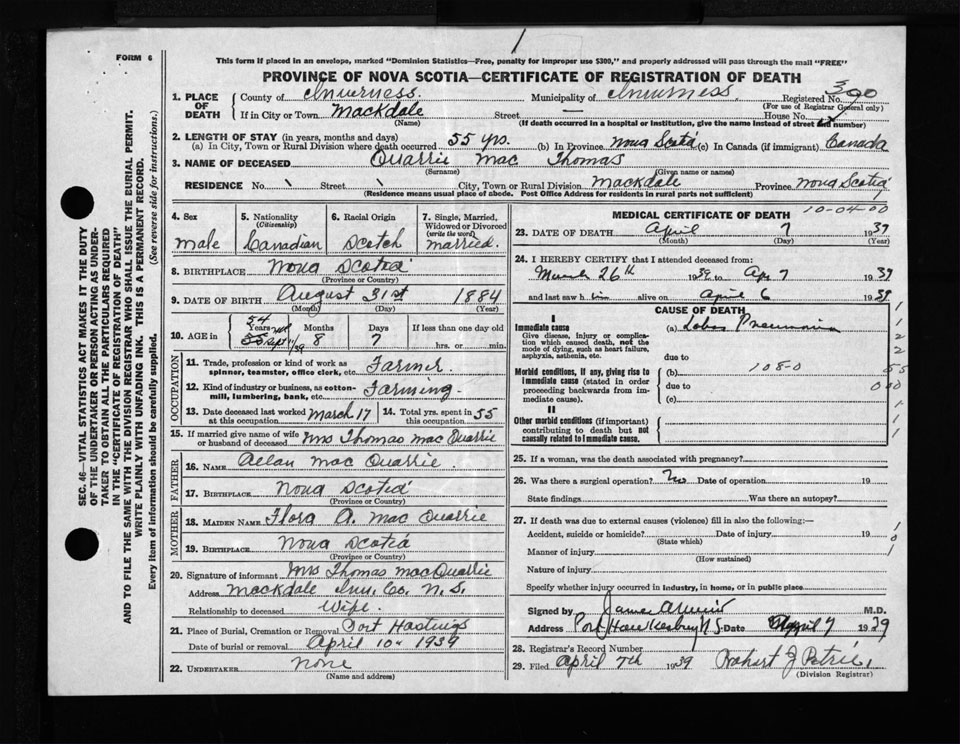 1
FORM 6
This form if placed in an envelope, marked "Dominion Statistics—Free, penalty for improper use $300," and properly addressed will pass through the mail "FREE"
PROVINCE OF NOVA SCOTIA—CERTIFICATE OF REGISTRATION OF DEATH
1. PLACE OF DEATH County of Inverness. Municipality of Inverness. Registered No. 390
(For use of Registrar General only)
If in City or Town Mackdale Street — House No.
(Name) (If death occurred in a hospital or institution, give the name instead of street and number)
2. LENGTH OF STAY (in years, months and days)
(a) In City, Town or Rural Division where death occurred 55 yrs. (b) In Province Nova Scotia (c) In Canada (if immigrant) Canada
3. NAME OF DECEASED Quarrie Mac Thomas
(Surname) (Given name or names)
RESIDENCE No. \ Street \ City, Town or Rural Division Mackdale Province Nova Scotia
(Residence means usual place of abode. Post Office Address for residents in rural parts not sufficient)
4. Sex male
5. Nationality (Citizenship) Canadian
6. Racial Origin Scotch
7. Single, Married, Widowed or Divorced (write the word) married.
8. BIRTHPLACE Nova Scotia
(Province or Country)
9. DATE OF BIRTH August 31st 1884
(Month) (Day) (Year)
10. AGE in 54 Years 8 Months 7 Days If less than one day old hrs. or min.
OCCUPATION
11. Trade, profession or kind of work as spinner, teamster, office clerk, etc. Farmer.
12. Kind of industry or business, as cotton-mill, lumbering, bank, etc. Farming.
13. Date deceased last worked at this occupation March 17 14. Total yrs. spent in this occupation 55
15. If married give name of wife or husband of deceased Mrs Thomas Mac Quarrie
FATHER
16. NAME Allan Mac Quarrie.
17. BIRTHPLACE Nova Scotia
(Province or Country)
MOTHER
18. MAIDEN NAME Flora A. Mac Quarrie
19. BIRTHPLACE Nova Scotia
(Province or Country)
20. Signature of informant Mrs Thomas MacQuarrie
Address Mackdale Inv. Co. N. S.
Relationship to deceased Wife.
21. Place of Burial, Cremation or Removal Port Hastings
Date of burial or removal April 10 1939
22. UNDERTAKER None
(Name and address)
MEDICAL CERTIFICATE OF DEATH 10-04-00
23. DATE OF DEATH April 7 1939
(Month) (Day) (Year)
24. I HEREBY CERTIFY that I attended deceased from:
March 26th 1939 to Ap. 7 1939
and last saw him alive on April 6 1939
CAUSE OF DEATH
I
Immediate cause (a) Lobar Pneumonia
Give disease, injury or complication which caused death, not the mode of dying, such as heart failure, asphyxia, asthenia, etc.
due to
Morbid conditions, if any, giving rise to immediate cause (stated in order preceding backwards from immediate cause). (b) 108-0
due to
(c)
II
Other morbid conditions (if important) contributing to death but not causally related to immediate cause.
25. If a woman, was the death associated with pregnancy?
26. Was there a surgical operation? No Date of operation 19
State findings Was there an autopsy?
27. If death was due to external causes (violence) fill in also the following:—
Accident, suicide or homicide? Date of injury 19
(State which)
Manner of injury
(How sustained)
Nature of injury
Specify whether injury occurred in industry, in home, or in public place
Signed by M.D.
Address Port Hawkesbury N S Date April 7 1939
28. Registrar's Record Number
29. Filed April 7th 1939
(Division Registrar)
SEC. 46—VITAL STATISTICS ACT MAKES IT THE DUTY
OF THE UNDERTAKER OR PERSON ACTING AS UNDER-
TAKER TO OBTAIN ALL THE PARTICULARS REQUIRED
IN THE "CERTIFICATE OF REGISTRATION OF DEATH"
AND TO FILE THE SAME WITH THE DIVISION REGISTRAR WHO SHALL ISSUE THE BURIAL PERMIT.
WRITE PLAINLY WITH UNFADING INK. THIS IS A PERMANENT RECORD.
Every item of information should be carefully supplied. (See reverse side for instructions.)